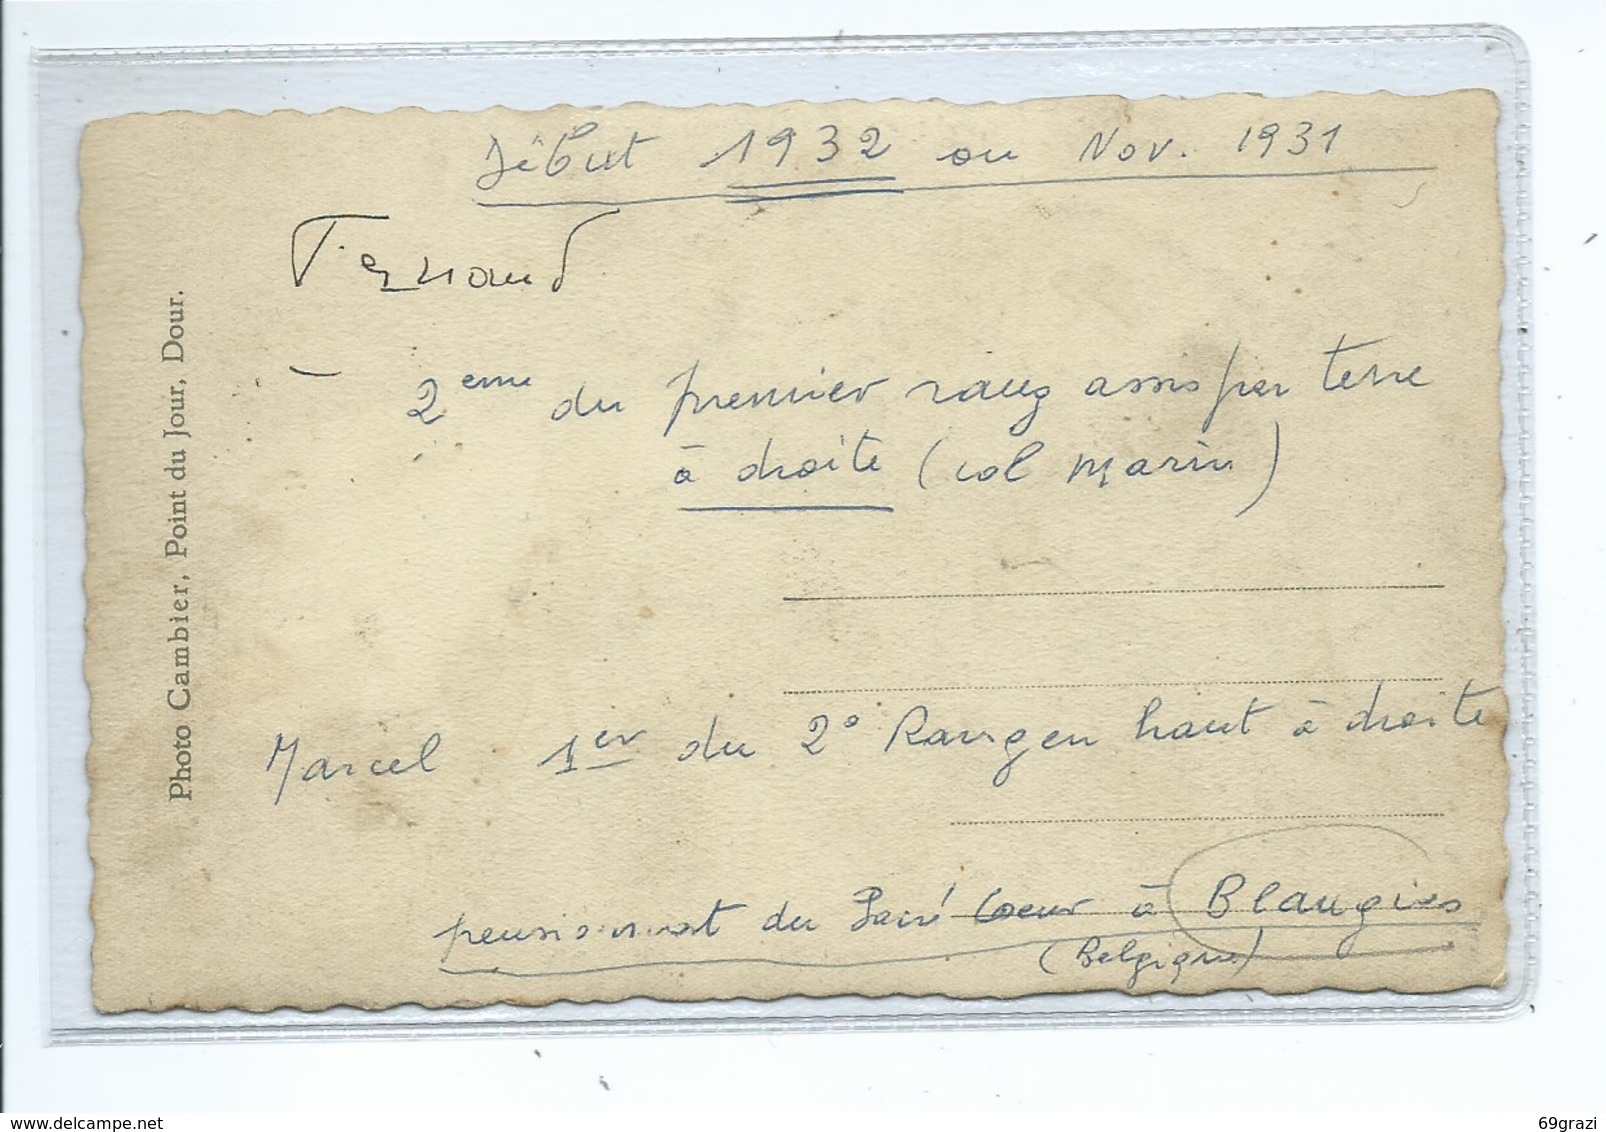 Début 1932 ou Nov. 1931
Fernand
— 2eme du premier rang assis par terre
à droite (col marin)
Marcel 1er du 2° Rang en haut à droite
pensionnat du Sacré Coeur à Blaugies
(Belgique)
Photo Cambier, Point du Jour, Dour.
www.delcampe.net
69grazi